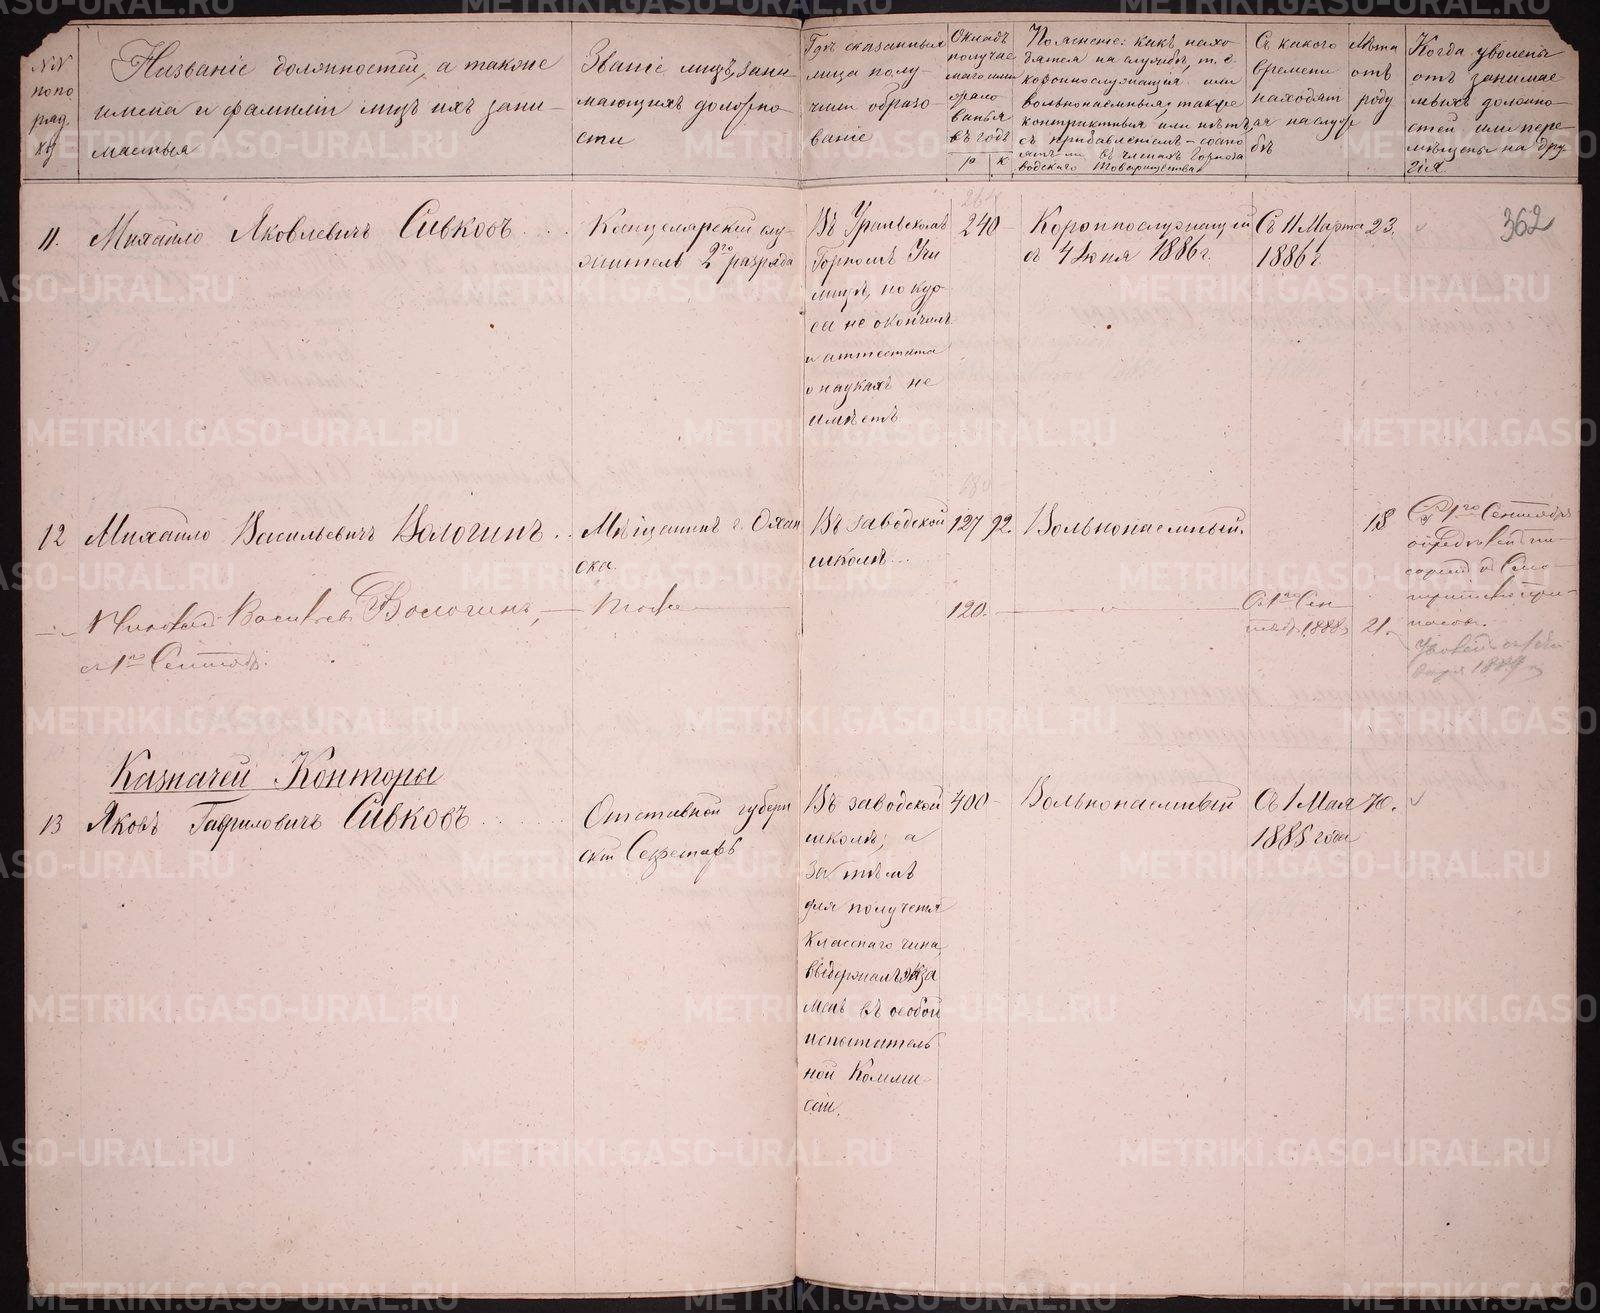 NN по поряд ку
Названіе должностей, а также
имена и фамиліи лицъ ихъ зани-
мающія
Званіе лицъ, зани-
мающихъ должно-
сти
Гдѣ сказанныя
лица полу-
чили образо-
ваніе
Окладъ
получае
маго ими
жало
ванья
въ годъ
Р К
Поясненіе: какъ нахо-
дятся на службѣ, т. е.
короннослужащія или
вольнонаемныя, также
контрактныя или нѣтъ,
съ прибавленіемъ – состо
ятъ ли въ членахъ Горноза
водскаго товарищества
Съ какого
времени
находят
ся на служ
бѣ
Лѣта
отъ
роду
Когда уволены
отъ занимае
мыхъ должно-
стей или пере-
мѣщены на дру
гія
362
11. Михаило Яковлевичъ Сивковъ . . .
Канцелярскій слу-
житель 2го разряда
Въ Уральскомъ
Горномъ Учи
лищѣ, но кур-
са не окончилъ
и аттестата
о наукахъ не
имѣетъ
240 –
Короннослужащій
съ 4 Іюня 1886 г.
Съ 11 Марта
1886 г.
23.
12 Михаило Васильевичъ Вологинъ . .
Мѣщанинъ г. Охан
ска.
Въ заводской
школѣ . . .
127 92.
Вольнонаемный.
18
Съ 1го Сентября
Васильевъ Вологинъ, – тоже –
съ 1го Сентяб.
120. –
Съ 1го Сен
тяб. 1888
21.
Казначей Конторы
13 Яковъ Гавриловичъ Сивковъ . .
Отставной губерн
скій Секретарь
Въ заводской
школѣ, а
затѣмъ
для полученія
класснаго чина,
выдержалъ экза
менъ въ особой
испытатель
ной Комми-
сіи.
400 –
Вольнонаемный
Съ 1 Мая
1885 года
70.
METRIKI.GASO-URAL.RU